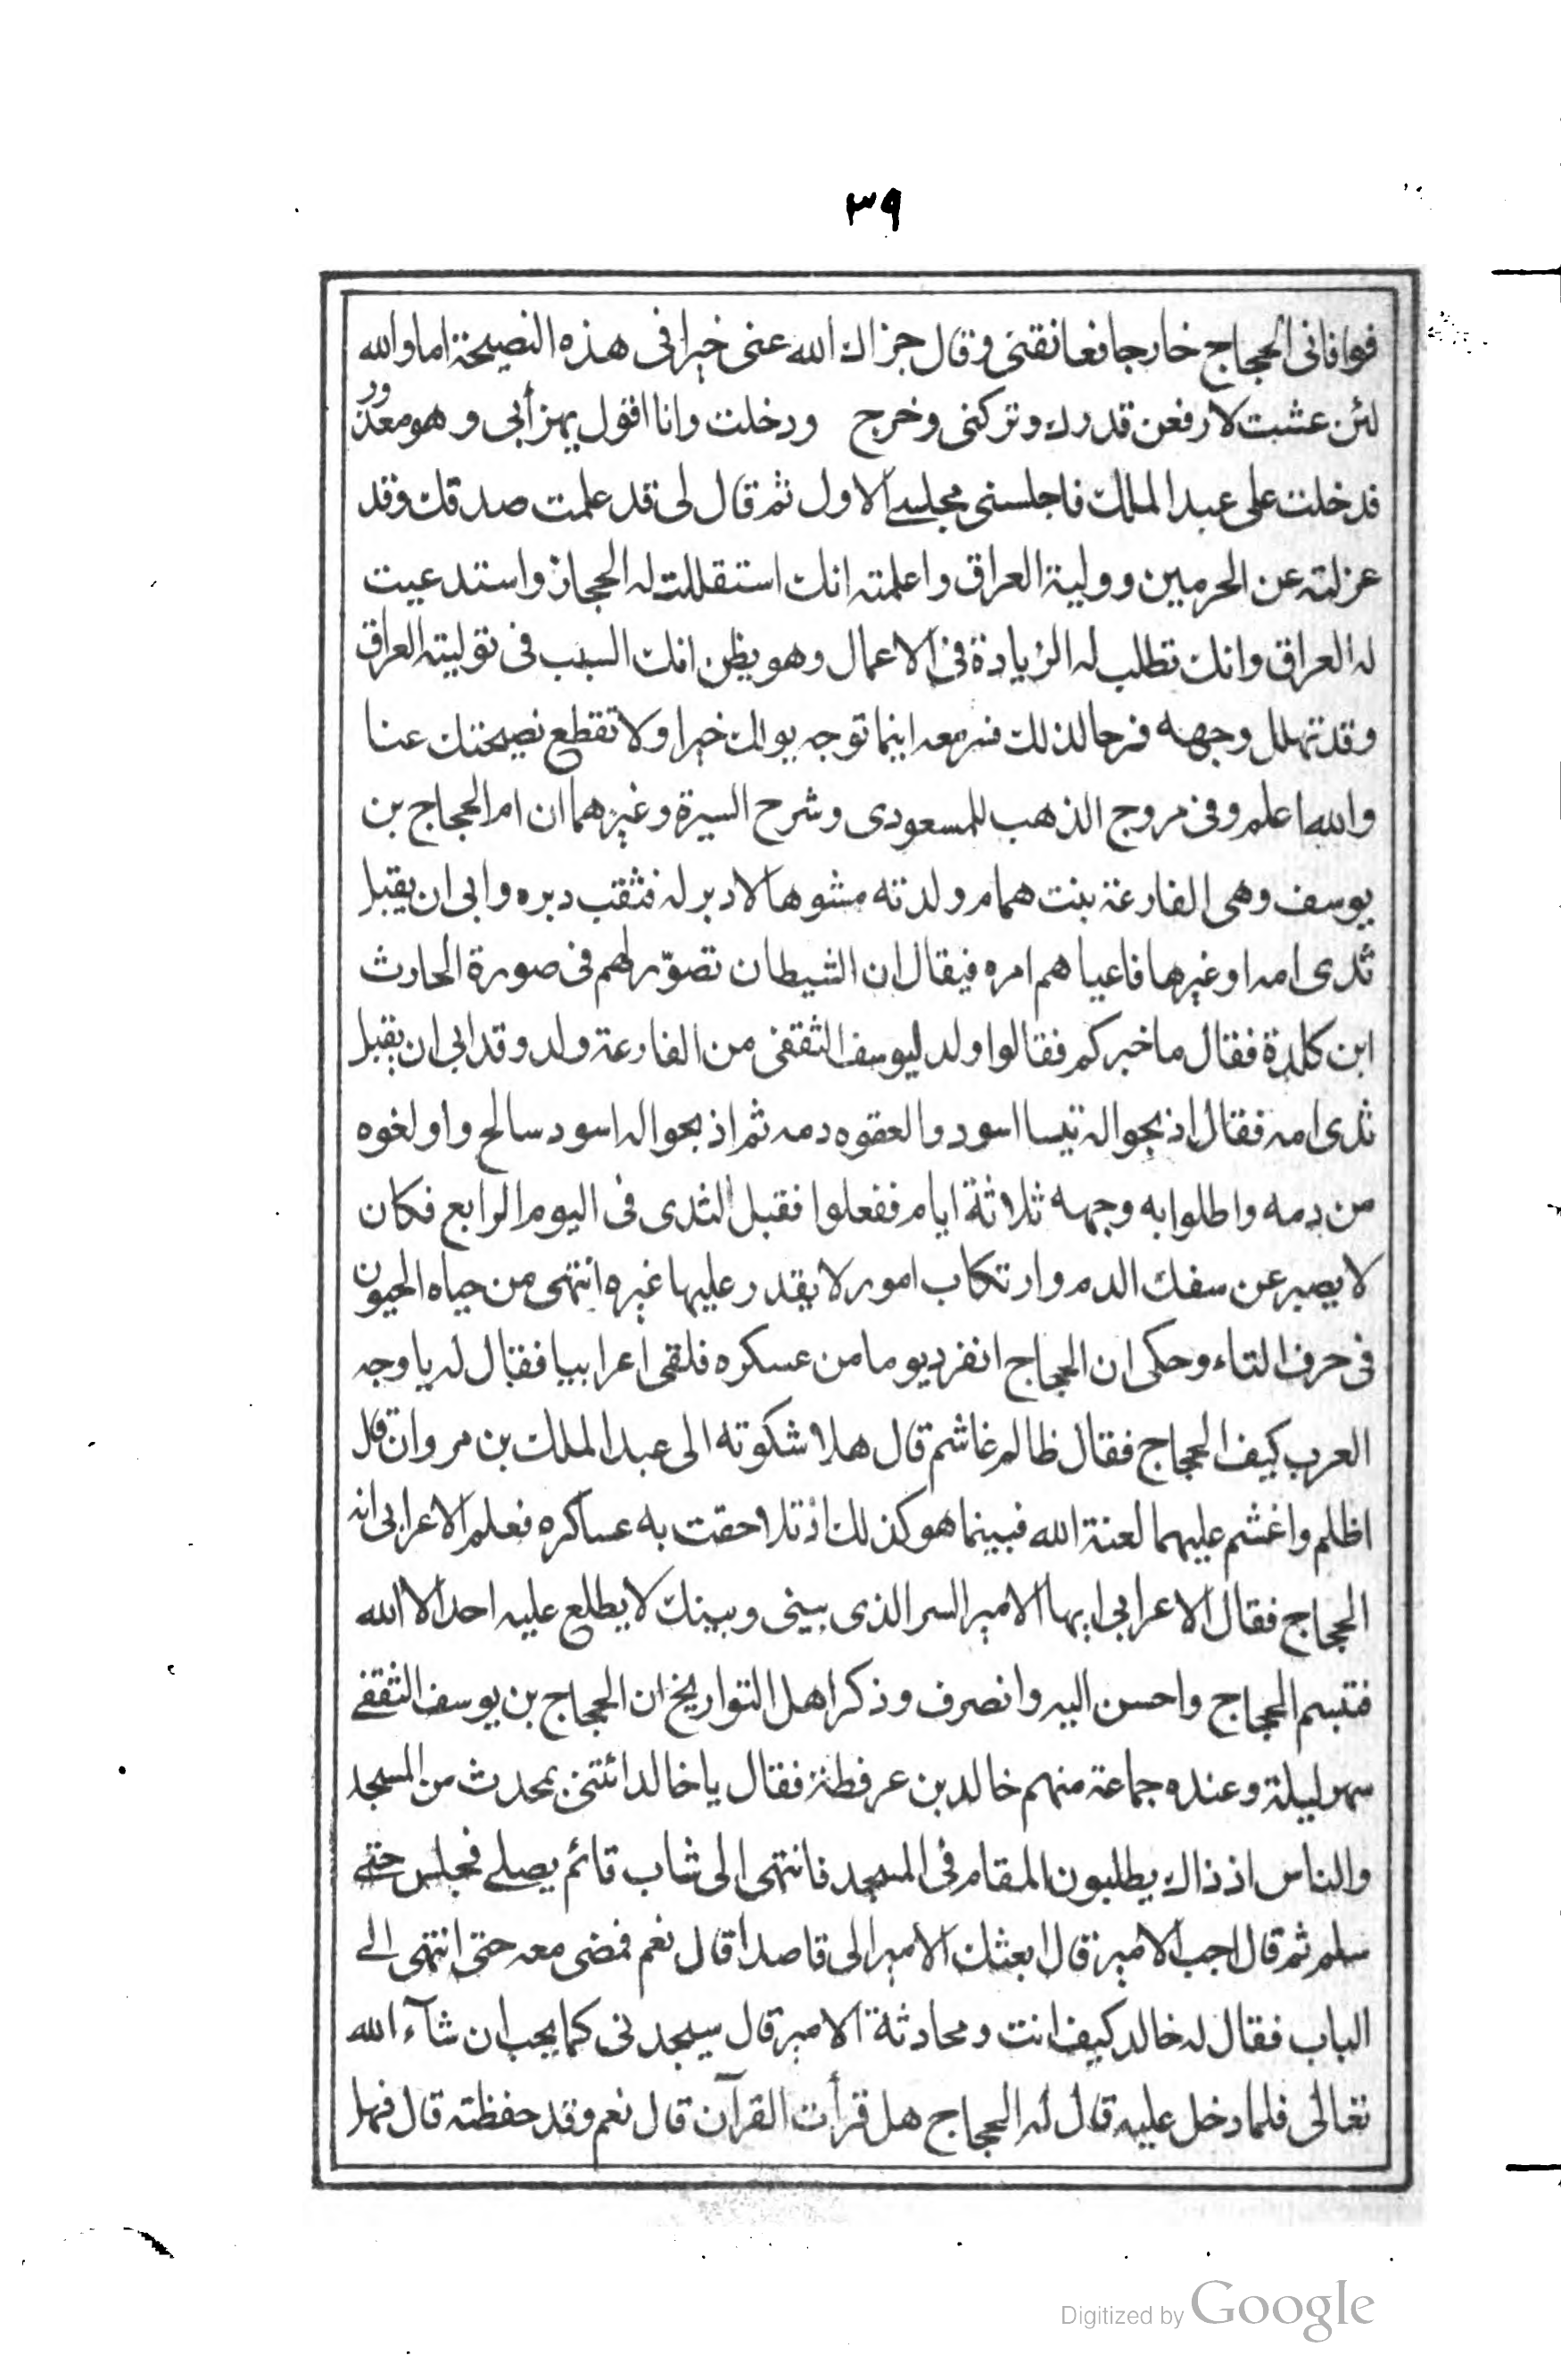 ٣٩
فوافانى الحجاج خارجا فعانقنى وقال جزاك الله عنى خيرا فى هذه النصيحة اما والله
لئن عشت لارفعن قدرك وتركنى وخرج ودخلت وانا اقول يهزأبى وهو معذور
فدخلت على عبد الملك فاجلسنى مجلسى الاول ثم قال لى قد علمت صدقك وقد
عزلته عن الحرمين ووليته العراق واعلمته انك استقللت له الحجاز واستدعيت
له العراق وانك تطلب له الزيادة فى الاعمال وهو يظن انك السبب فى توليته العراق
وقد تهلل وجهه فرحا لذلك فسر معه اينما توجه يولك خيرا ولا تقطع نصيحتك عنا
والله اعلم وفى مروج الذهب للمسعودى وشرح السيرة وغيرهما ان ام الحجاج بن
يوسف وهى الفارعة بنت همام ولدته مشوها لا دبر له فثقب دبره وابى ان يقبل
ثدى امه او غيرها فاعياهم امره فيقال ان الشيطان تصوّر لهم فى صورة الحارث
ابن كلدة فقال ما خبركم فقالوا ولد ليوسف الثقفى من الفارعة ولد وقد ابى ان يقبل
ثدى امه فقال اذبحوا له تيسا اسود والعقوه دمه ثم اذبحوا له اسود سالح واولغوه
من دمه واطلوا به وجهه ثلاثة ايام ففعلوا فقبل الثدى فى اليوم الرابع فكان
لا يصبر عن سفك الدم وارتكاب امور لا يقدر عليها غيره انتهى من حياه الحيون
فى حرف التاء وحكى ان الحجاج انفرد يوما من عسكره فلقى اعرابيا فقال له يا وجه
العرب كيف الحجاج فقال ظالم غاشم قال هلا شكوته الى عبد الملك بن مروان قال
اظلم واغشم عليهما لعنة الله فبينما هو كذلك اذ تلاحقت به عساكره فعلم الاعرابى انه
الحجاج فقال الاعرابى ايها الامير السر الذى بينى وبينك لا يطلع عليه احد الا الله
فتبسم الحجاج واحسن اليه وانصرف وذكر اهل التواريخ ان الحجاج بن يوسف الثقفى
سهر ليلة وعنده جماعة منهم خالد بن عرفطة فقال يا خالد ائتنى بمحدث من المسجد
والناس اذ ذاك يطلبون المقام فى المسجد فانتهى الى شاب قائم يصلى فجلس حتى
سلم ثم قال اجب الامير قال ابعثك الامير الى قاصدا قال نعم فمضى معه حتى انتهى الى
الباب فقال له خالد كيف انت ومحادثة الامير قال سيجدنى كما يحب ان شآء الله
تعالى فلما دخل عليه قال له الحجاج هل قرأت القرآن قال نعم وقد حفظته قال فهل
Digitized by Google